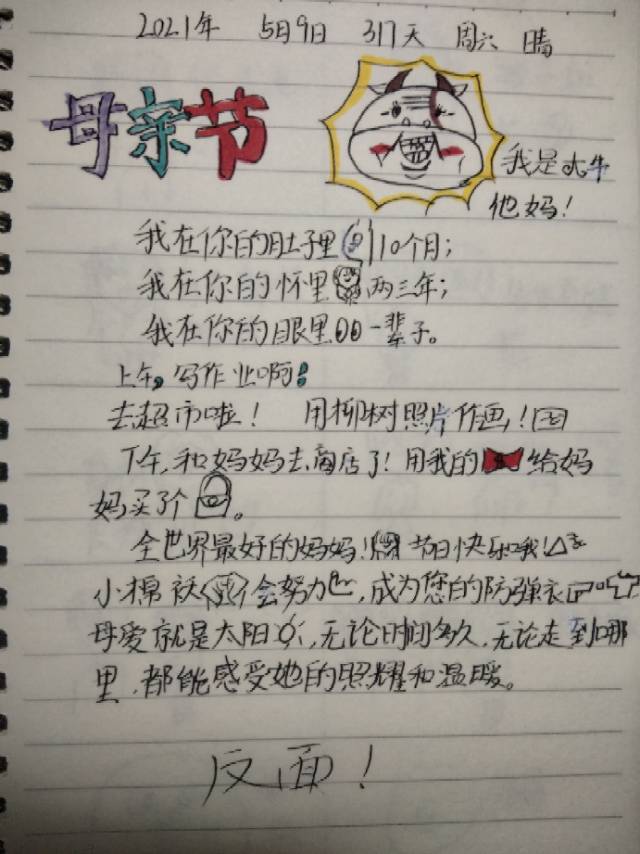 2021年 5月9日 317天 周六 晴
母亲节
我是大牛
他妈!
我在你的肚子里10个月;
我在你的怀里两三年;
我在你的眼里一辈子。
上午,写作业啊!
去超市啦! 用柳树照片作画!
下午,和妈妈去商店了!用我的给妈
妈买了个。
全世界最好的妈妈!节日快乐哦!
小棉袄会努力,成为您的防弹衣
母爱就是太阳,无论时间多久,无论走到哪
里,都能感受她的照耀和温暖。
反面!